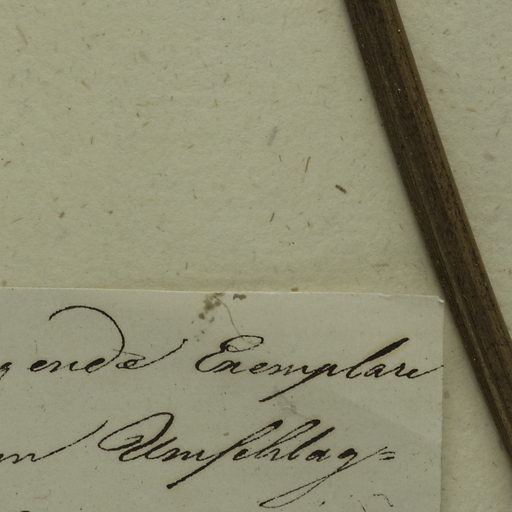 gende Exemplare
Umschlag=